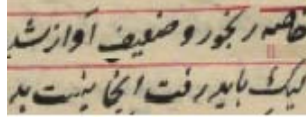 خاصه رنجور و ضعیف آواز شد
لیک باید رفت آنجا نیست بد